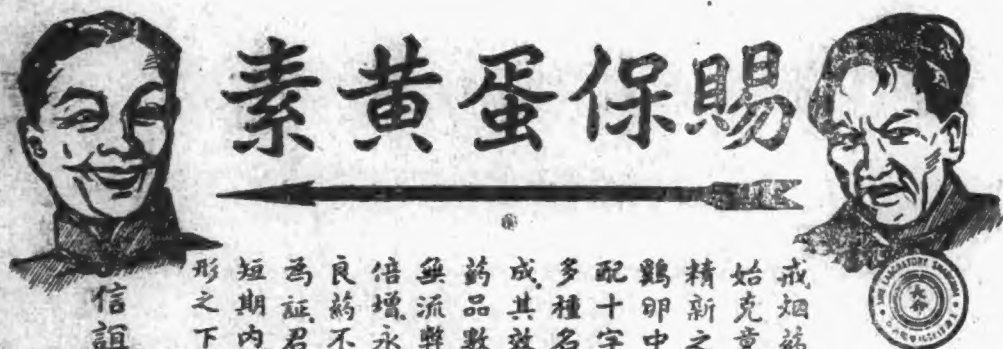 賜保蛋黃素
戒烟葯
始克竟
精新之
鷄卵中
配十字
多種名
成其效
葯品數
無流弊
倍增永
良葯不
為証君
短期内
形之下
信誼
長命